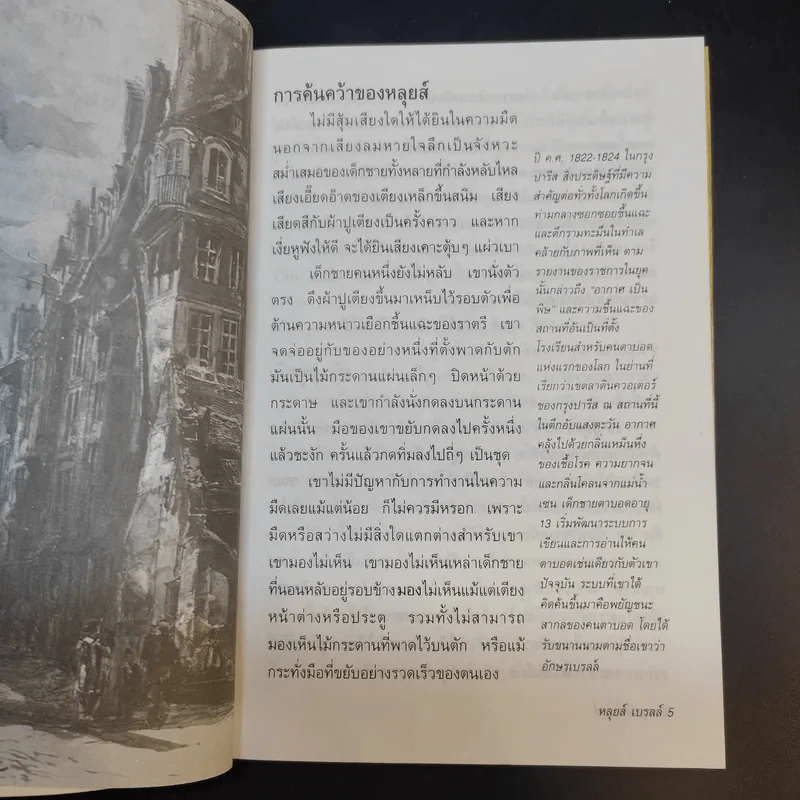 การค้นคว้าของหลุยส์
ไม่มีสุ้มเสียงใดให้ได้ยินในความมืด
นอกจากเสียงลมหายใจลึกเป็นจังหวะ
สม่ำเสมอของเด็กชายทั้งหลายที่กำลังหลับไหล
เสียงเอี๊ยดอ๊าดของเตียงเหล็กขึ้นสนิม เสียง
เสียดสีกับผ้าปูเตียงเป็นครั้งคราว และหาก
เงี่ยหูฟังให้ดี จะได้ยินเสียงเคาะตุ้บๆ แผ่วเบา
เด็กชายคนหนึ่งยังไม่หลับ เขานั่งตัว
ตรง ดึงผ้าปูเตียงขึ้นมาเหน็บไว้รอบตัวเพื่อ
ต้านความหนาวเยือกชื้นแฉะของราตรี เขา
จดจ่ออยู่กับของอย่างหนึ่งที่ตั้งพาดกับตัก
มันเป็นไม้กระดานแผ่นเล็กๆ ปิดหน้าด้วย
กระดาษ และเขากำลังนั่งกดลงบนกระดาน
แผ่นนั้น มือของเขาขยับกดลงไปครั้งหนึ่ง
แล้วชะงัก ครั้นแล้วกดทิ่มลงไปถี่ๆ เป็นชุด
เขาไม่มีปัญหากับการทำงานในความ
มืดเลยแม้แต่น้อย ก็ไม่ควรมีหรอก เพราะ
มืดหรือสว่างไม่มีสิ่งใดแตกต่างสำหรับเขา
เขามองไม่เห็น เขามองไม่เห็นเหล่าเด็กชาย
ที่นอนหลับอยู่รอบข้าง มองไม่เห็นแม้แต่เตียง
หน้าต่างหรือประตู รวมทั้งไม่สามารถ
มองเห็นไม้กระดานที่พาดไว้บนตัก หรือแม้
กระทั่งมือที่ขยับอย่างรวดเร็วของตนเอง
ปี ค.ศ. 1822-1824 ในกรุง
ปารีส สิ่งประดิษฐ์ที่มีความ
สำคัญต่อทั่วทั้งโลกเกิดขึ้น
ท่ามกลางซอกซอยชื้นแฉะ
และตึกรามทะมึนในทำเล
คล้ายกับภาพที่เห็น ตาม
รายงานของราชการในยุค
นั้นกล่าวถึง "อากาศ เป็น
พิษ" และความชื้นแฉะของ
สถานที่อันเป็นที่ตั้ง
โรงเรียนสำหรับคนตาบอด
แห่งแรกของโลก ในย่านที่
เรียกว่าเขตลาตินควอเตอร์
ของกรุงปารีส ณ สถานที่นี้
ในตึกอับแสงตะวัน อากาศ
คลุ้งไปด้วยกลิ่นเหม็นหึ่ง
ของเชื้อโรค ความยากจน
และกลิ่นโคลนจากแม่น้ำ
เซน เด็กชายตาบอดอายุ
13 เริ่มพัฒนาระบบการ
เขียนและการอ่านให้คน
ตาบอดเช่นเดียวกับตัวเขา
ปัจจุบัน ระบบที่เขาได้
คิดค้นขึ้นมาคือพยัญชนะ
สากลของคนตาบอด โดยได้
รับขนานนามตามชื่อเขาว่า
อักษรเบรลล์
หลุยส์ เบรลล์ 5